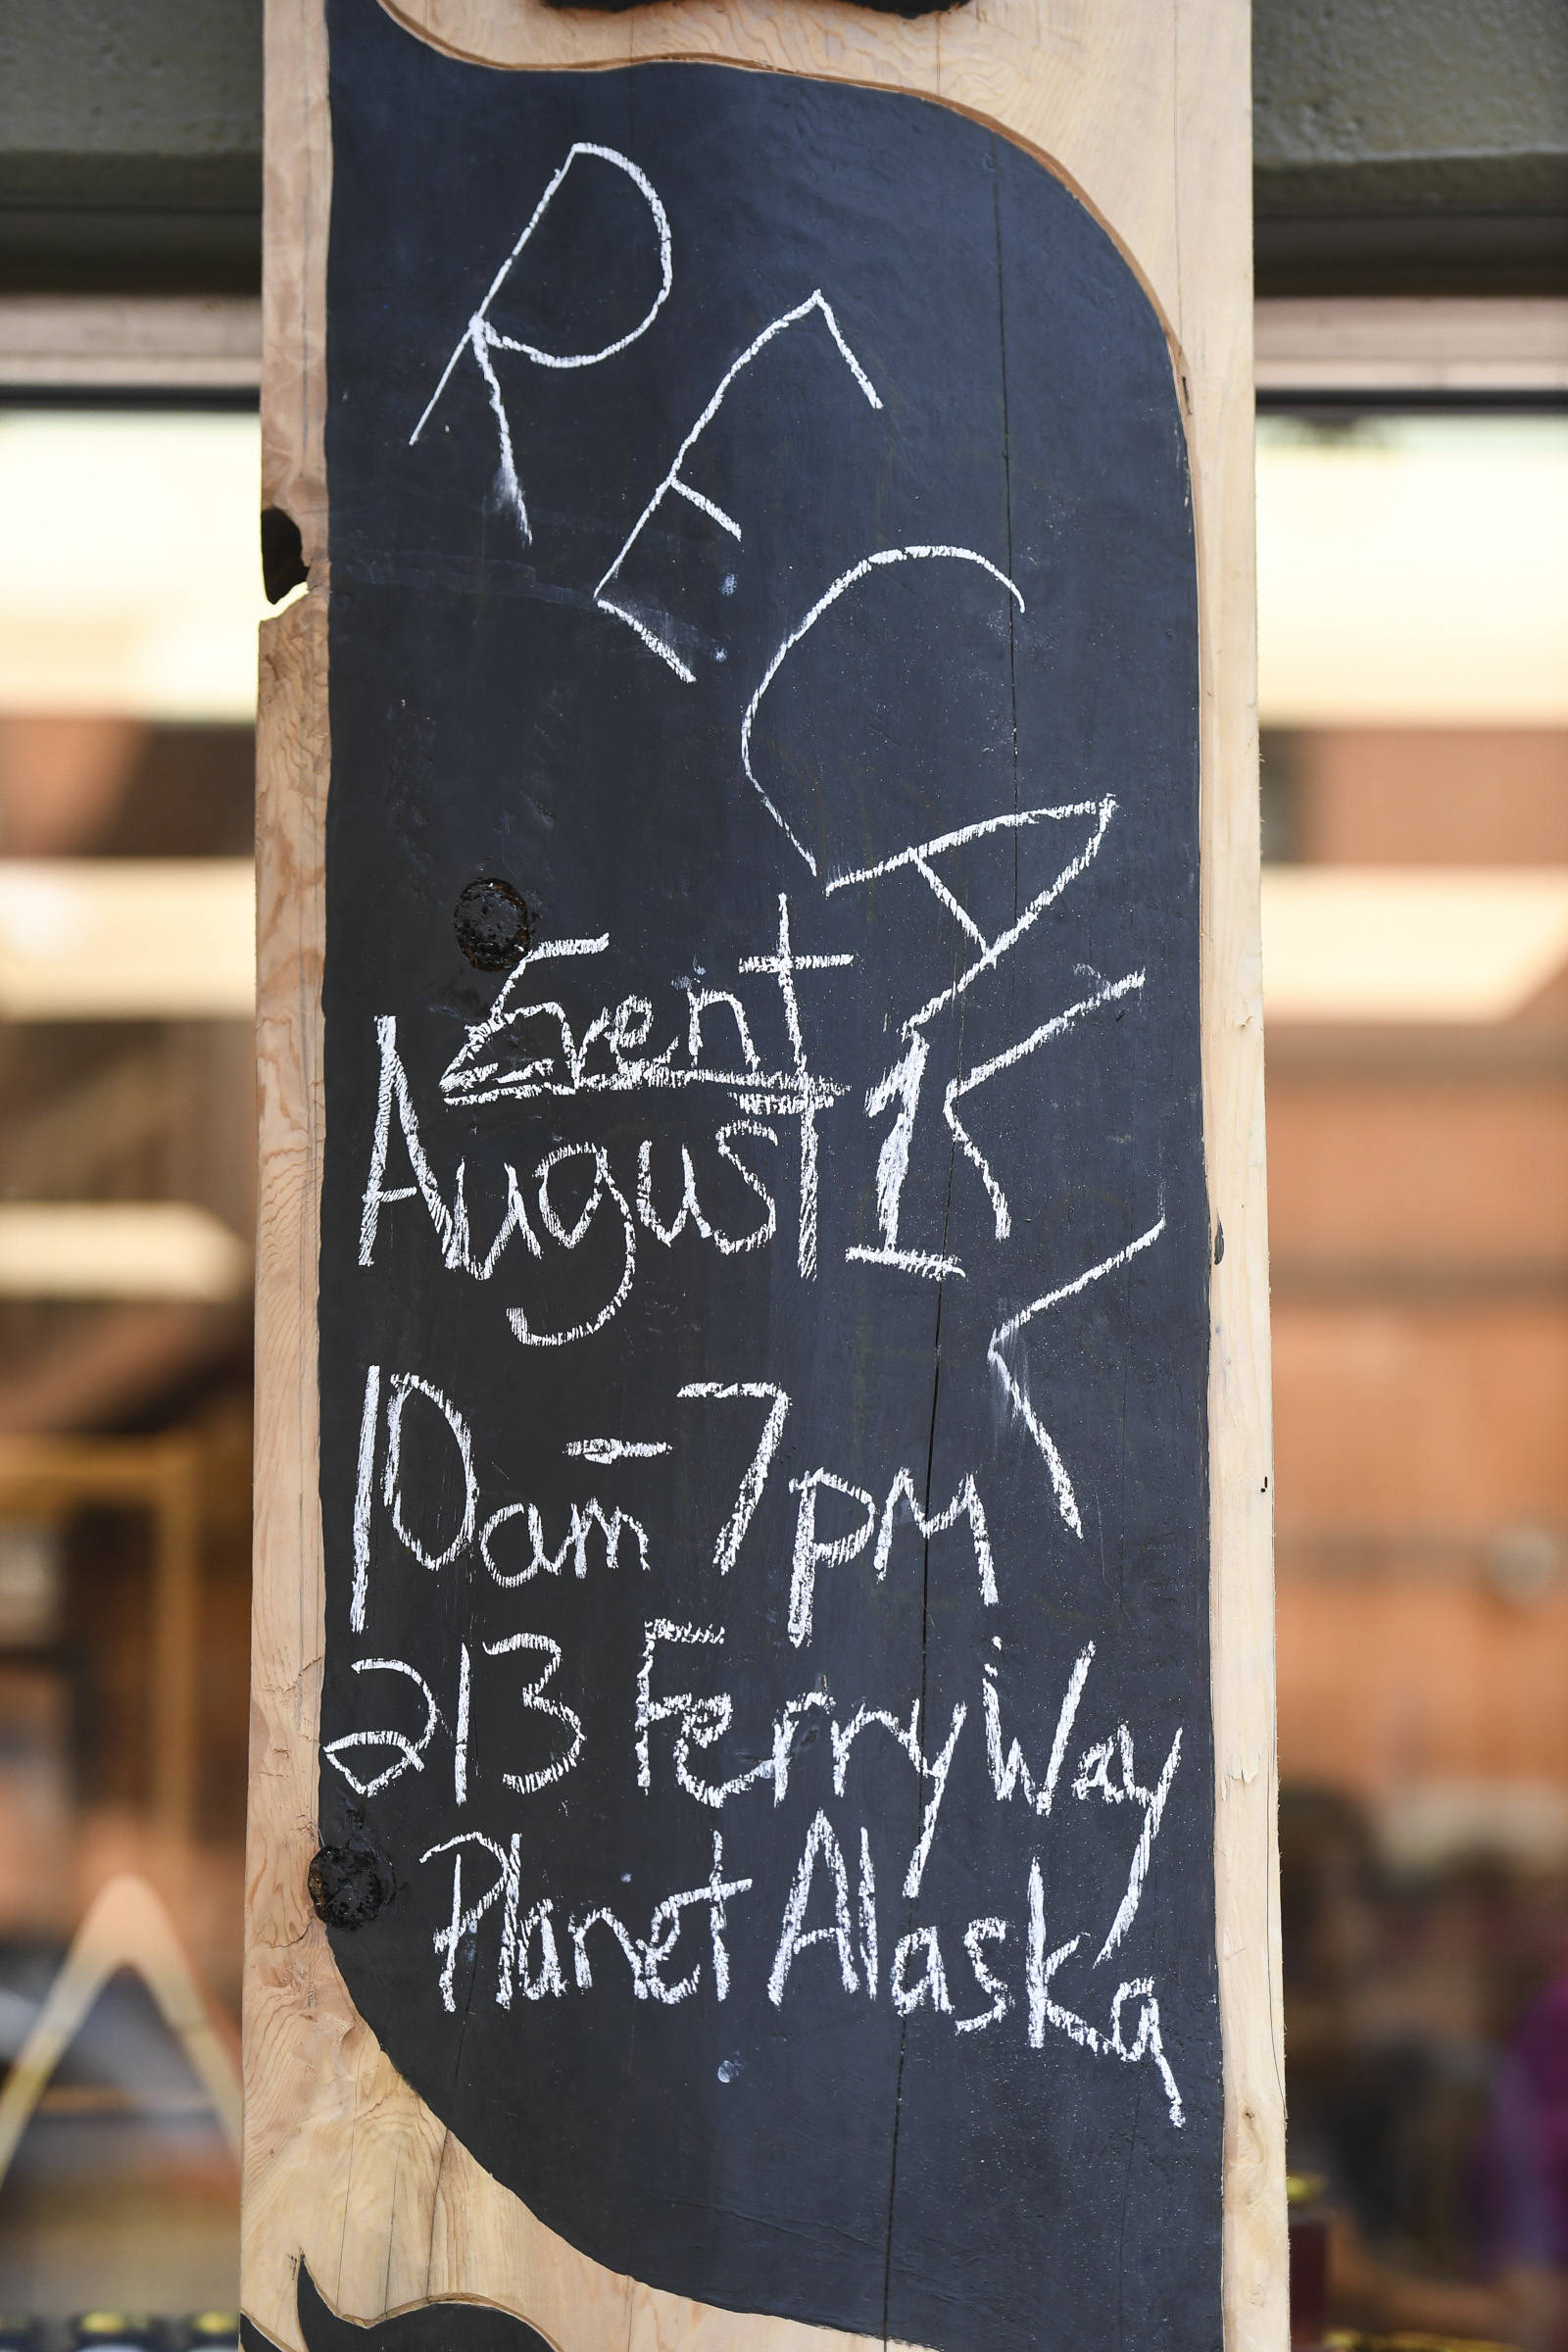 RECALL
Event
August 1
10am - 7pm
213 Ferry Way
Planet Alaska